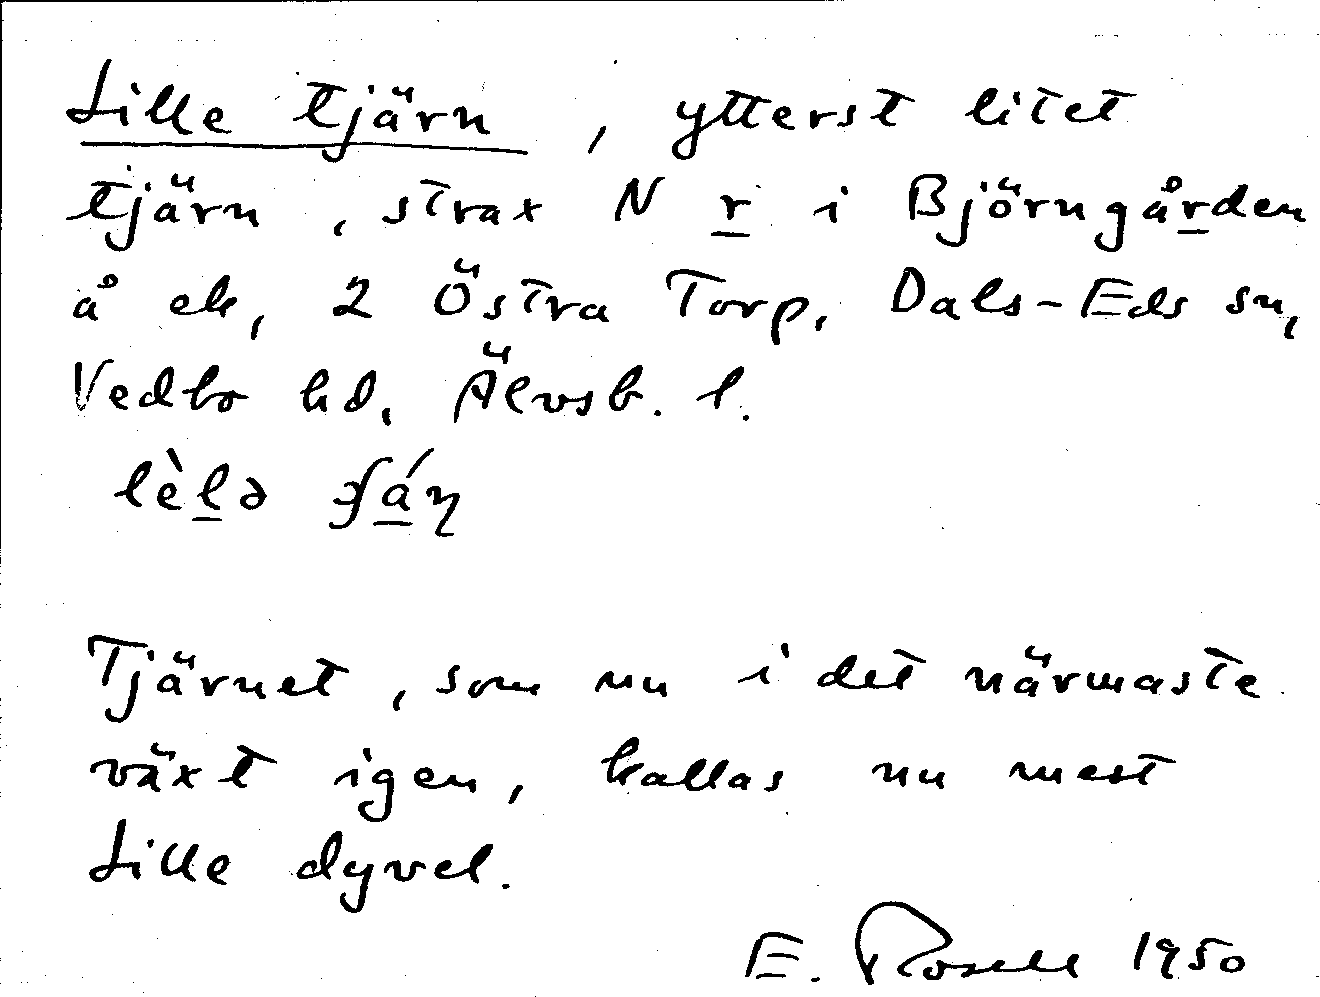 Lille tjärn, ytterst litet
tjärn, strax N r i Björngården
å ek, 2 Östra Torp, Dals-Eds sn,
Vedbo hd, Älvsb. l.
lèlə
Tjärnet, som nu i det närmaste
växt igen, kallas nu mest
Lille dyvel.
E. Rosell 1950